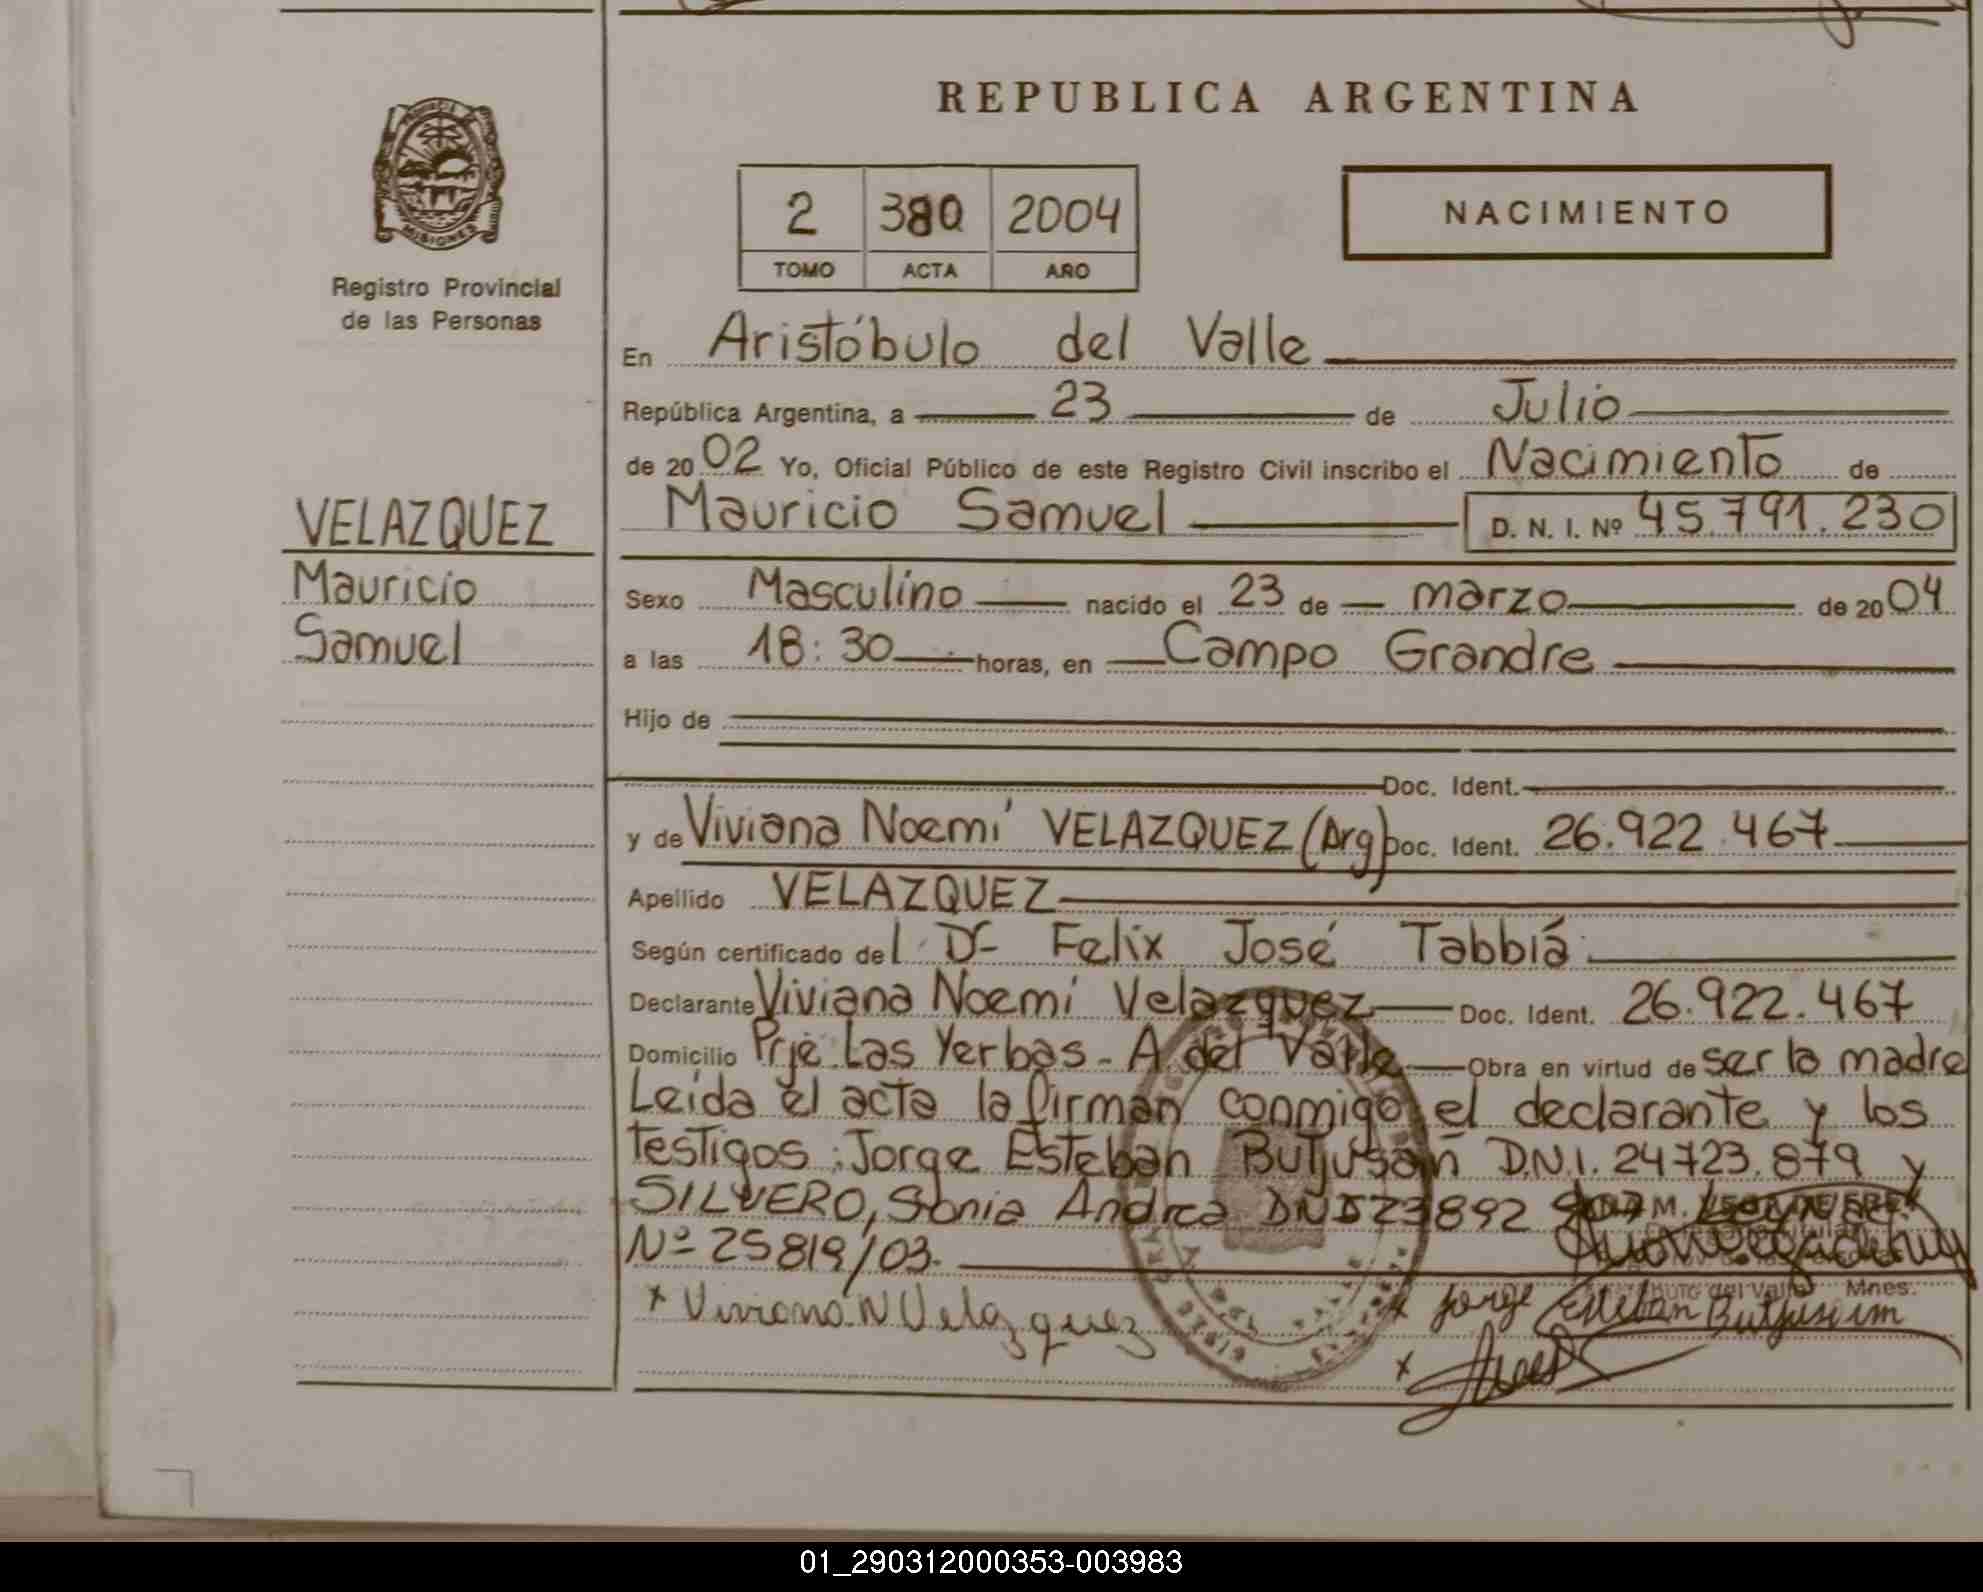 REPUBLICA ARGENTINA
2 380 2004
TOMO ACTA AÑO
NACIMIENTO
MISIONES
Registro Provincial
de las Personas
En Aristóbulo del Valle
República Argentina, a 23 de Julio
de 2002 Yo, Oficial Público de este Registro Civil inscribo el Nacimiento de
Mauricio Samuel D. N. I. Nº 45.791.230
VELAZQUEZ
Mauricio
Samuel
Sexo Masculino nacido el 23 de marzo de 2004
a las 18:30 horas, en Campo Grandre
Hijo de
Doc. Ident.
y de Viviana Noemí VELAZQUEZ (Arg) Doc. Ident. 26.922.467
Apellido VELAZQUEZ
Según certificado del Dr Felix José Tabbiá
Declarante Viviana Noemí Velazquez Doc. Ident. 26.922.467
Domicilio Prje Las Yerbas - A. del Valle Obra en virtud de ser la madre
Leída el acta la firman conmigo el declarante y los
testigos: Jorge Esteban D.N.I. 24723.879 y
SILVERO, Sonia Andrea
Nº 25819/03.
x Viviana N Velazquez
x Jorge Esteban
x
del Valle Mnes.
01_290312000353-003983